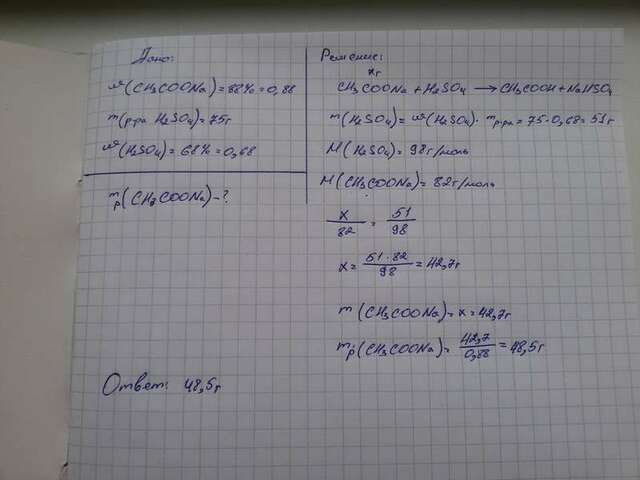 Дано:
w(CH3COONa)=88%=0,88
m(р-ра H2SO4)=75г
w(H2SO4)=68%=0,68
mр(CH3COONa)-?
Решение:
xг
CH3COONa+H2SO4→CH3COOH+NaHSO4
m(H2SO4)=w(H2SO4)·mр-ра=75·0,68=51г
M(H2SO4)=98г/моль
M(CH3COONa)=82г/моль
x/82=51/98
x=51·82/98=42,7г
m(CH3COONa)=x=42,7г
mр(CH3COONa)=42,7/0,88=48,5г
Ответ: 48,5г